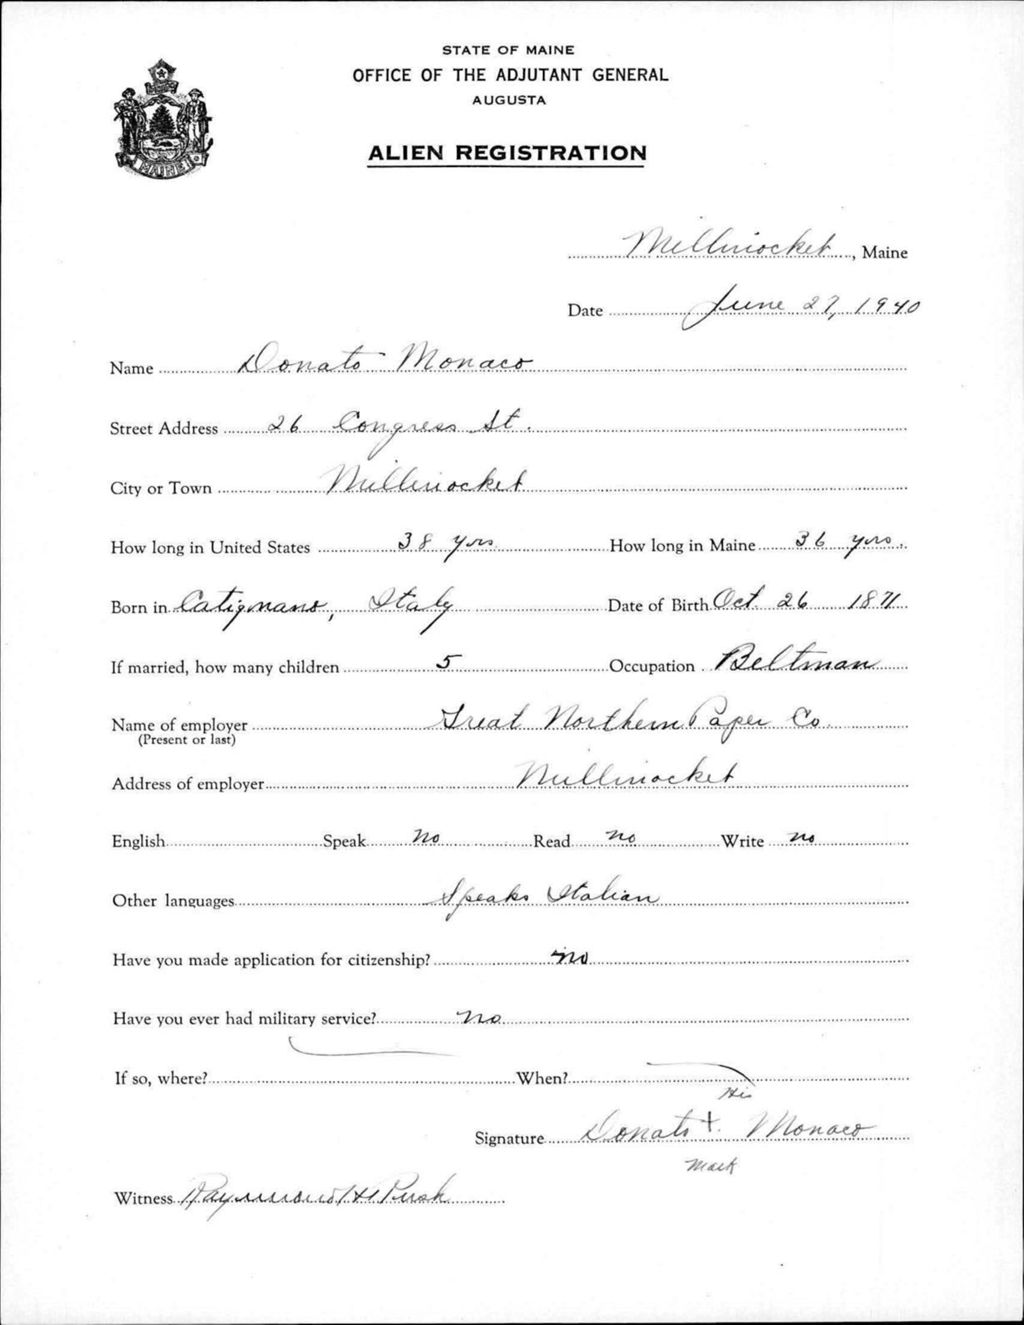 STATE OF MAINE
OFFICE OF THE ADJUTANT GENERAL
AUGUSTA
ALIEN REGISTRATION
MAINE
Millinocket, Maine
Date June 27, 1940
Name Donato Monaco
Street Address 26 Congress St.
City or Town Millinocket
How long in United States 38 yrs How long in Maine 36 yrs.
Born in Catignano, Italy Date of Birth Oct. 26 1871
If married, how many children 5 Occupation Beltman
Name of employer Great Northern Paper Co.
(Present or last)
Address of employer Millinocket
English Speak No Read no Write no
Other languages Speaks Italian
Have you made application for citizenship? no
Have you ever had military service? no
If so, where? When?
His
Signature Donato + Monaco
mark
Witness Raymond H